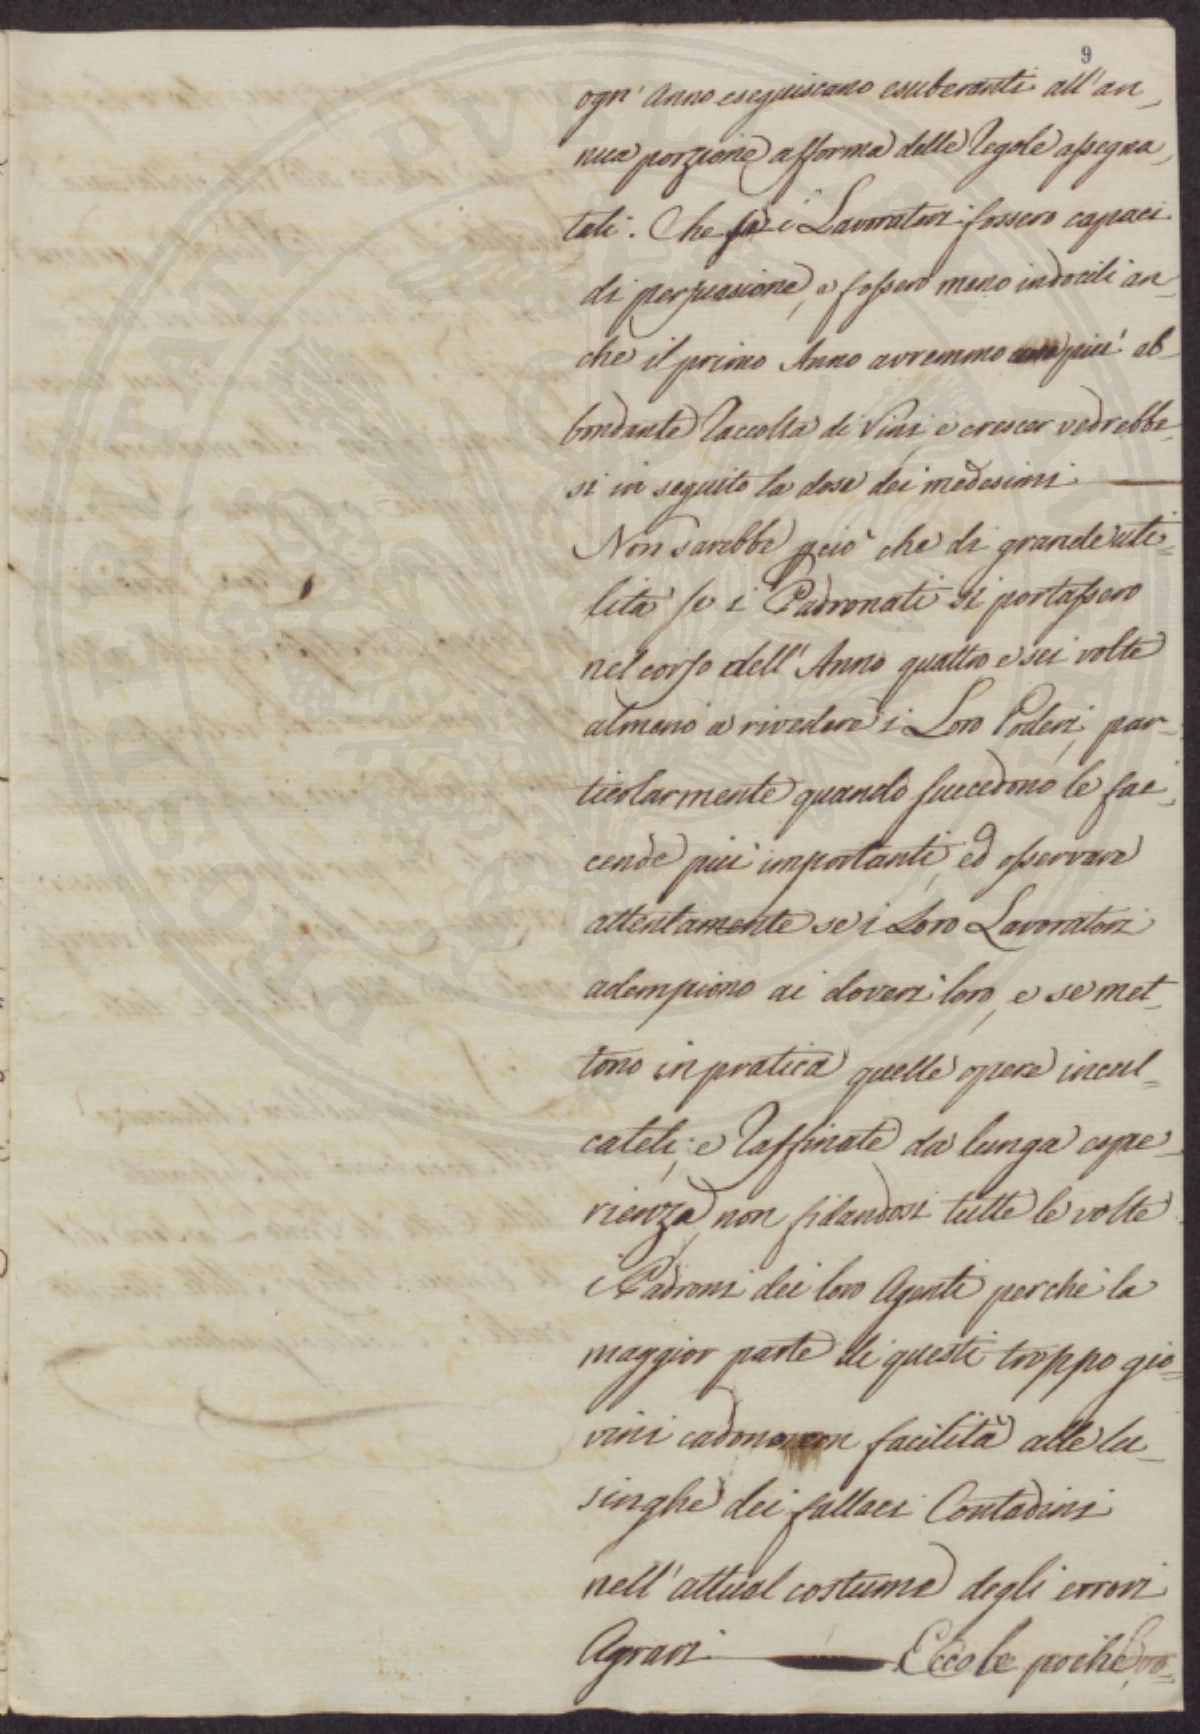 9
ogn' Anno eseguiscano esuberanti all'an„
nua porzione afforma delle Regole assegna„
tali. Che se i Lavoratori fossero capaci
di persuasione, e fossero meno indocili an„
che il primo Anno avremmo più ab„
bondante Raccolta di Vini e crescer vedrebbe„
si in seguito la dose dei medesimi
Non sarebbe perciò che di grande uti=
lità se i Padronati si portassero
nel corso dell'Anno quattro e sei volte
almeno a rivedere i Loro Poderi, par=
ticolarmente quando succedono le fac„
cende più importanti, ed osservare
attentamente se i Loro Lavoratori
adempiono ai doveri loro, e se met„
tono in pratica quelle opere incul=
cateli, e Raffinate da lunga espe„
rienza, non fidandosi tutte le volte
i Padroni dei loro Agenti perchè la
maggior parte di questi troppo gio=
vini cadono con facilità alle lu„
singhe dei fallaci Contadini
nell'attual costume degli errori
Agrari Ecco le poche